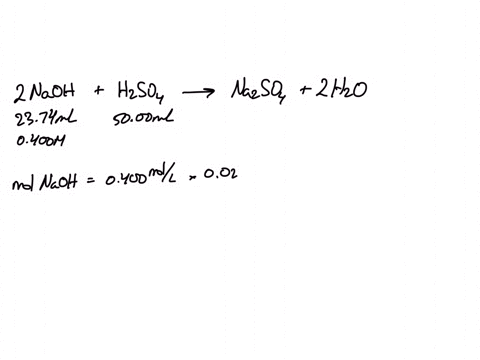 2NaOH + H2SO4 → Na2SO4 + 2H2O
23.74mL 50.00mL
0.400M
mol NaOH = 0.400 mol/L × 0.02